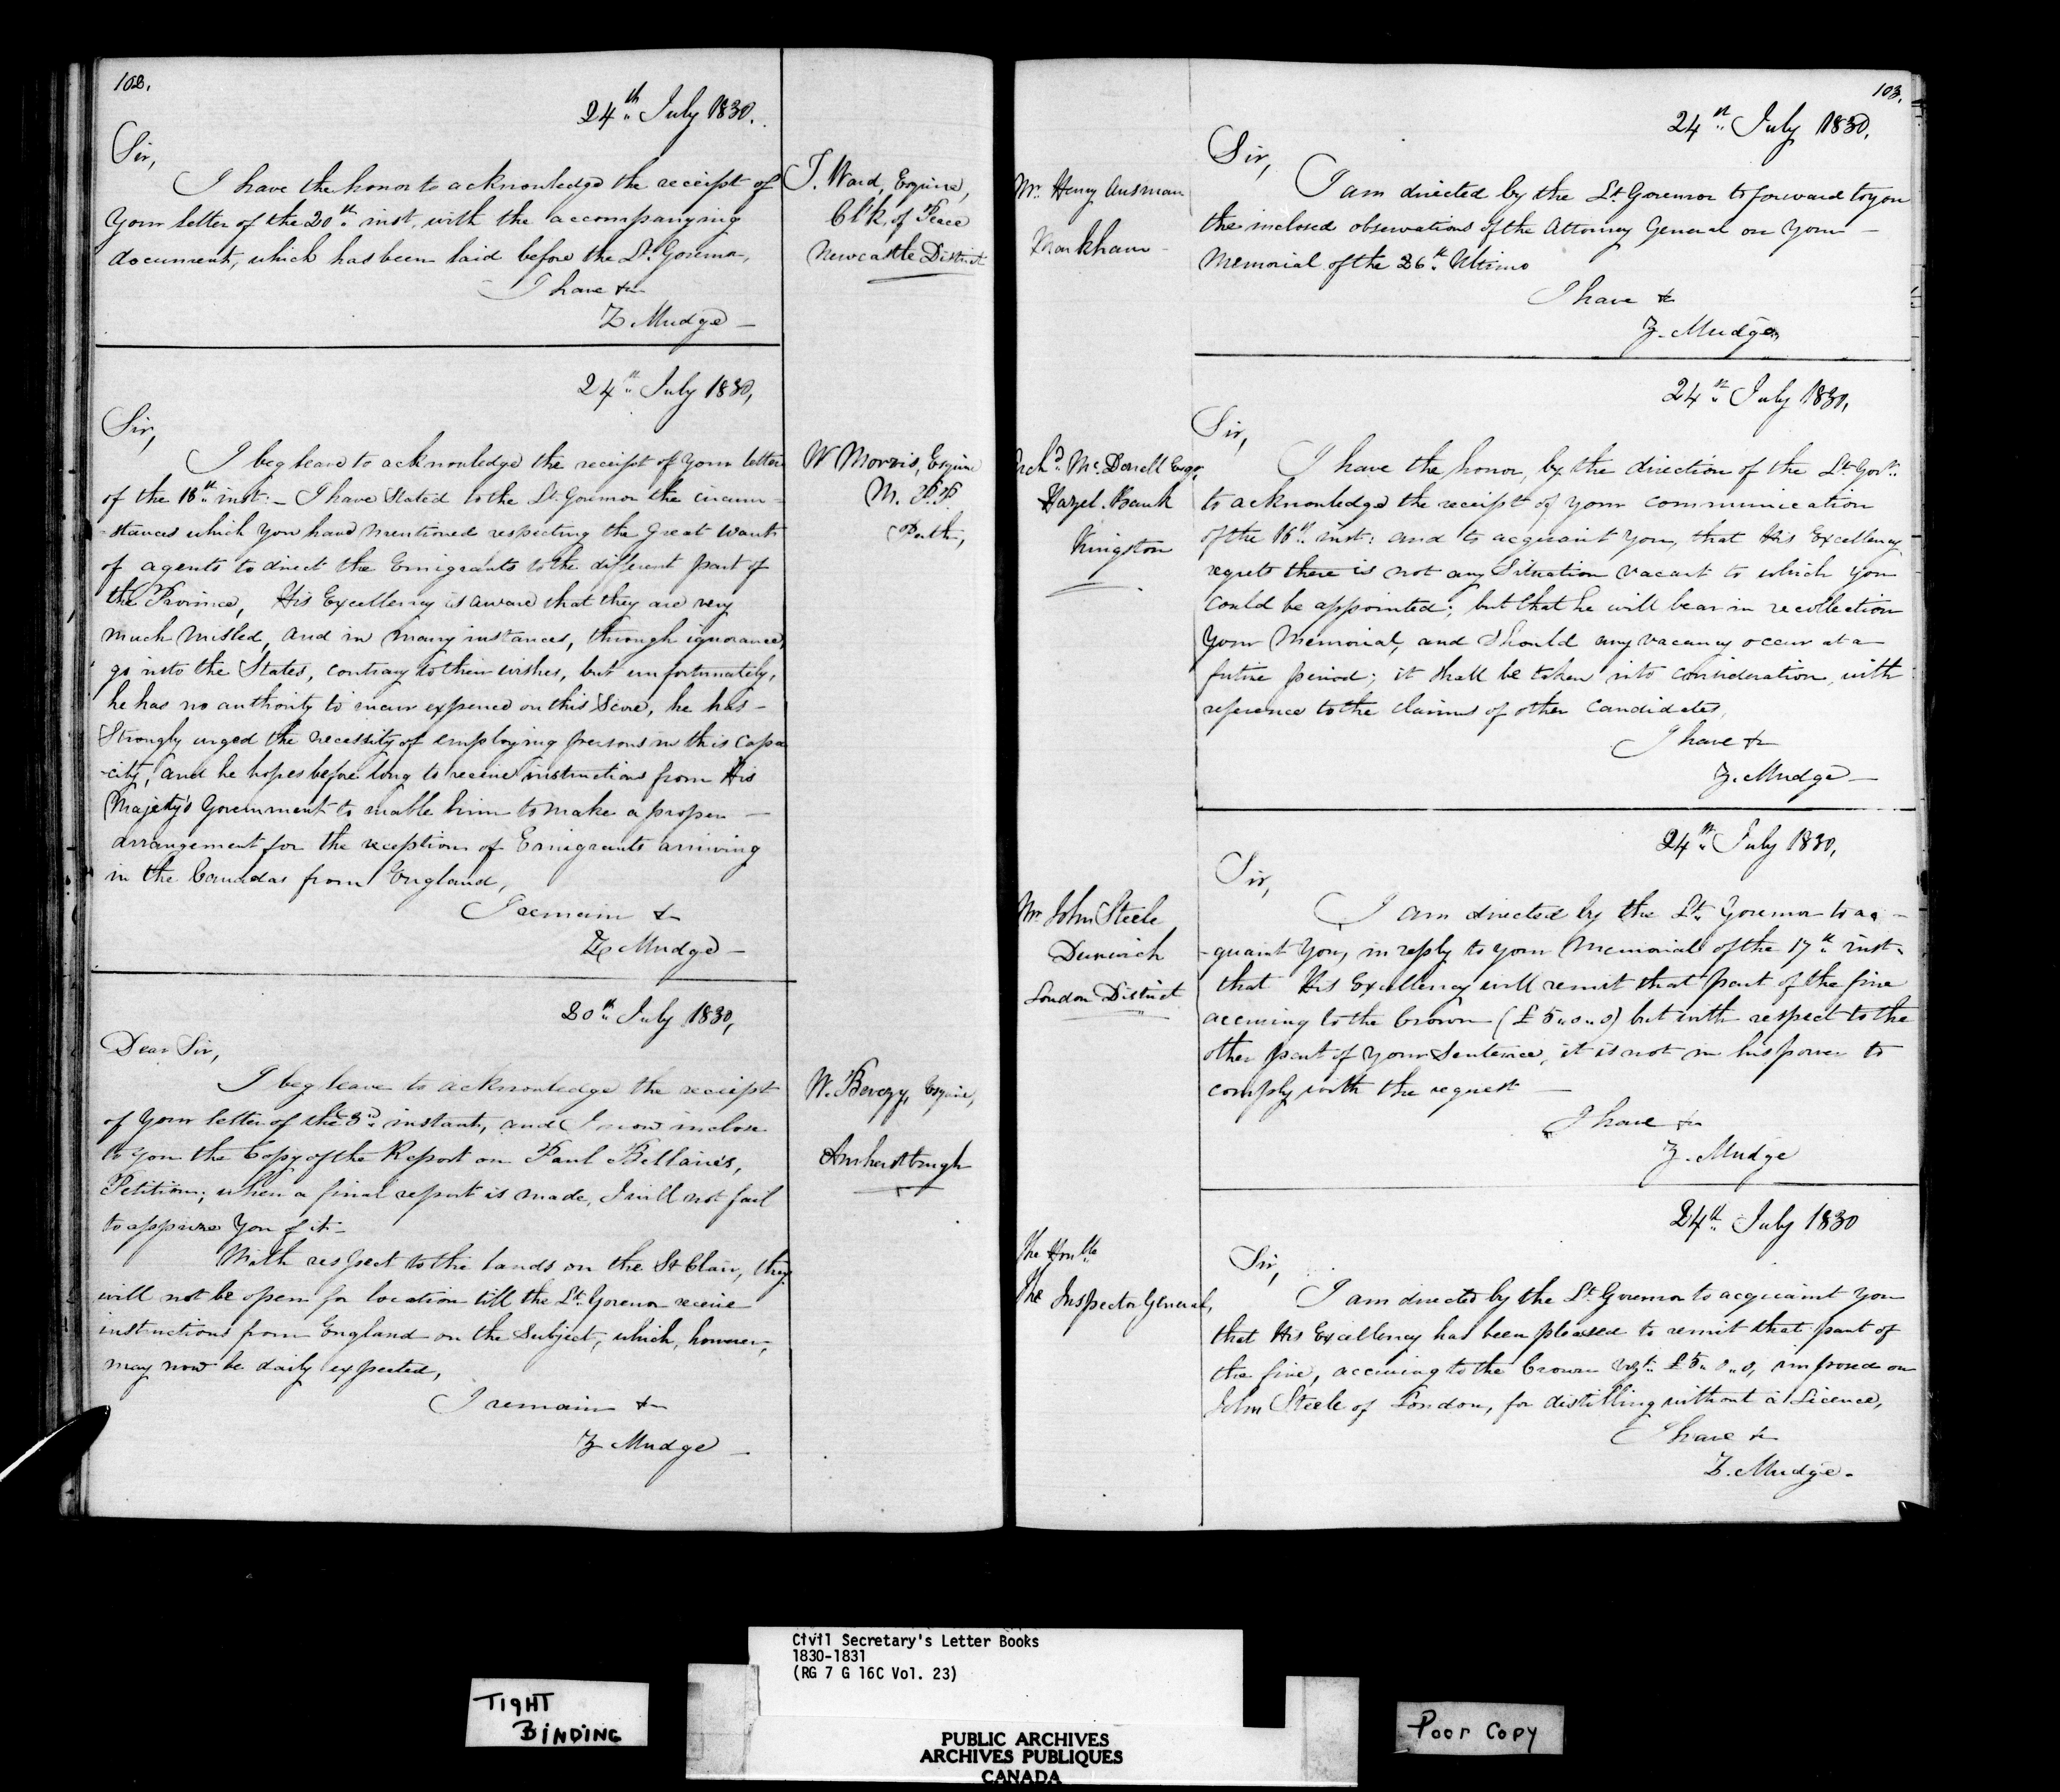 102.
24th July 1830.
Sir,
I have the honor to acknowledge the receipt of
Your letter of the 20th inst. with the accompanying
document, which has been laid before the Lt. Governor,
I have &c
Z. Mudge
T. Ward, Esquire,
Clk. of Peace
Newcastle District
24th July 1830,
Sir,
I beg leave to acknowledge the receipt of Your letter
of the 18th inst: - I have Stated to the Lt. Governor the circum-
-stances which You have mentioned respecting the great want
of agents to direct the Emigrants to the different part of
the Province, His Excellency is aware that they are very
much misled, and in many instances, through ignorance,
go into the States, contrary to their wishes, but unfortunately,
he has no authority to incur expence on this Score, he has -
Strongly urged the necessity of employing persons in this Capa
-city, and he hopes before long to receive instructions from His
Majesty's Government to enable him to make a proper -
arrangement for the reception of Emigrants arriving
in the Canadas from England,
I remain &c
Z. Mudge
W Morris, Esquire
M. P.P.
Perth,
20th July 1830,
Dear Sir,
I beg leave to acknowledge the receipt
of Your letter of the 3d instant, and I now inclose
to You the Copy of the Report on Paul Bellaire's,
Petition; when a final report is made, I will not fail
to apprize You of it -
With respect to the lands on the St Clair, they
will not be open for location till the Lt. Governor receive
instructions from England on the Subject, which, however,
may now be daily expected,
I remain &c
Z Mudge
W. Berczy, Esquire,
Amherstburgh
103.
24th July 1830.
Mr. Henry Ausman
Markham
Sir,
I am directed by the Lt. Governor to forward to you
the inclosed observations of the Attorney General on Your
Memorial of the 26th Ultimo
I have &c
Z. Mudge
24th July 1830,
Archd. McDonell Esqr.
Hazel Bank
Kingston
Sir,
I have the honor, by the direction of the Lt. Govr.
to acknowledge the receipt of Your communication
of the 16th inst: and to acquaint You, that His Excellency
regrets there is not any Situation vacant to which you
could be appointed; but that he will bear in recollection
Your Memorial, and should any vacancy occur at a
future period; it shall be taken into consideration, with
reference to the claims of other Candidates,
I have &c
Z. Mudge
24th July 1830,
Mr John Steele
Dunwich
London District
Sir,
I am directed by the Lt. Governor to ac -
-quaint You, in reply to Your Memorial of the 17th inst.
that His Excellency will remit that part of the fine
accruing to the Crown (£ 5 " 0 " 0) but with respect to the
other part of Your Sentence, it is not in his power to
comply with the request -
I have &c
Z. Mudge
24th July 1830
The Honble
The Inspector General,
Sir,
I am directed by the Lt. Governor to acquaint You
that His Excellency has been pleased to remit that part of
the fine, accruing to the Crown Vizt. £ 5 " 0 " 0, imposed on
John Steele of London, for distilling without a Licence,
I have &c
Z. Mudge.
Civil Secretary's Letter Books
1830-1831
(RG 7 G 16C Vol. 23)
TIGHT
BINDING
PUBLIC ARCHIVES
ARCHIVES PUBLIQUES
CANADA
Poor Copy